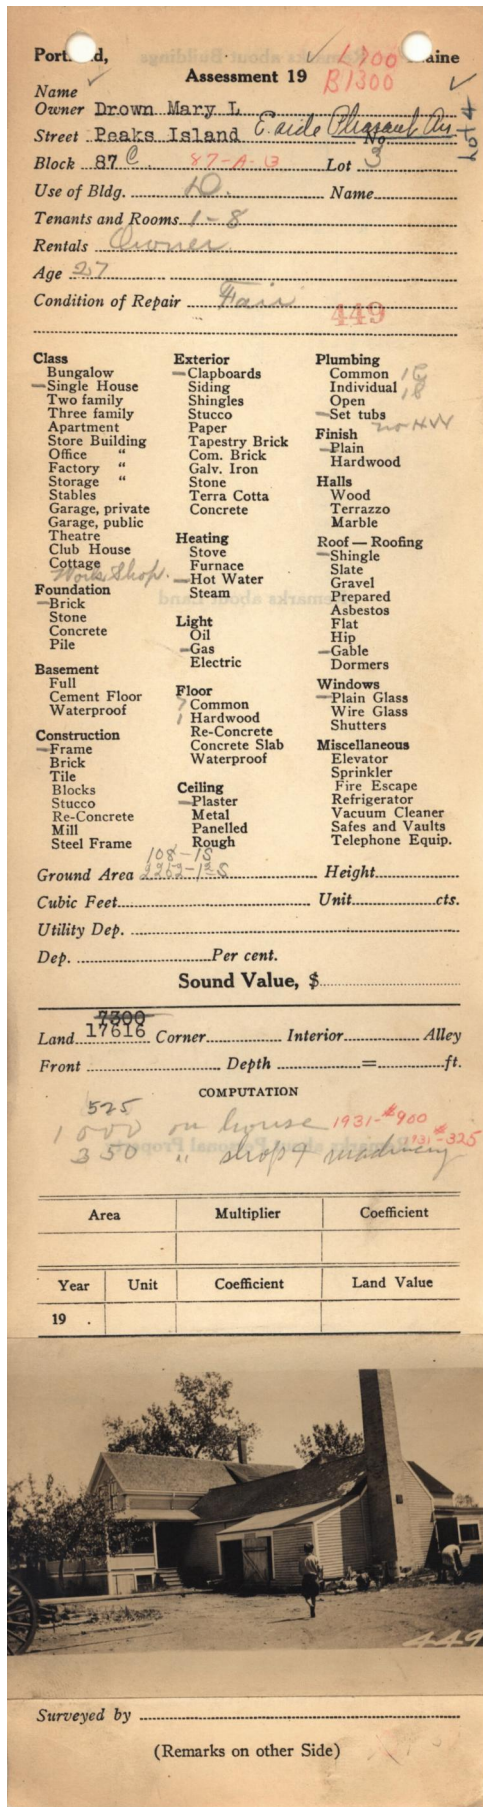 Portland, Maine
1700
Assessment 19
B1300
Name
Owner Drown Mary L
Street Peaks Island E side Pleasant Av No.
Lot 4
Block 87 C. 87-A-3 Lot 3
Use of Bldg. D. Name
Tenants and Rooms 1-8
Rentals Owner
Age 27
Condition of Repair Fair
449
Class
Bungalow
Single House
Two family
Three family
Apartment
Store Building
Office "
Factory "
Storage "
Stables
Garage, private
Garage, public
Theatre
Club House
Cottage
Work Shop.
Foundation
Brick
Stone
Concrete
Pile
Basement
Full
Cement Floor
Waterproof
Construction
Frame
Brick
Tile
Blocks
Stucco
Re-Concrete
Mill
Steel Frame
Exterior
Clapboards
Siding
Shingles
Stucco
Paper
Tapestry Brick
Com. Brick
Galv. Iron
Stone
Terra Cotta
Concrete
Heating
Stove
Furnace
Hot Water
Steam
Light
Oil
Gas
Electric
Floor
7 Common
1 Hardwood
Re-Concrete
Concrete Slab
Waterproof
Ceiling
Plaster
Metal
Panelled
Rough
Plumbing
Common 1C
Individual 1B
Open
Set tubs
no HW
Finish
Plain
Hardwood
Halls
Wood
Terrazzo
Marble
Roof — Roofing
Shingle
Slate
Gravel
Prepared
Asbestos
Flat
Hip
Gable
Dormers
Windows
Plain Glass
Wire Glass
Shutters
Miscellaneous
Elevator
Sprinkler
Fire Escape
Refrigerator
Vacuum Cleaner
Safes and Vaults
Telephone Equip.
108-1S
Ground Area 2262-1½S Height
Cubic Feet Unit cts.
Utility Dep.
Dep. Per cent.
Sound Value, $
7300
Land 17616 Corner Interior Alley
Front Depth = ft.
COMPUTATION
525
1000 on house 1931-$900
350 " shop & machinery 1931-$325
Area Multiplier Coefficient
Year Unit Coefficient Land Value
19 .
449
Surveyed by
(Remarks on other Side)